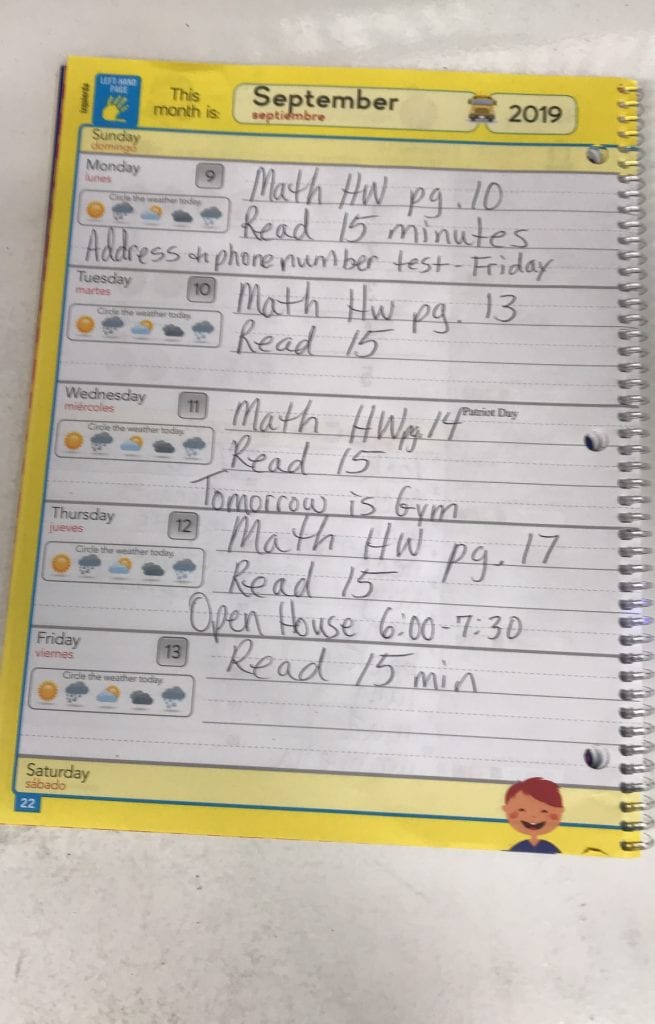 LEFT-HAND
PAGE
izquierda
This
month is:
September
septiembre
2019
Sunday
domingo
Monday
lunes
9
Circle the weather today.
Math HW pg. 10
Read 15 minutes
Address + phone number test - Friday
Tuesday
martes
10
Circle the weather today.
Math Hw pg. 13
Read 15
Wednesday
miércoles
11
Circle the weather today.
Math HW pg 14
Patriot Day
Read 15
Tomorrow is Gym
Thursday
jueves
12
Circle the weather today.
Math HW pg. 17
Read 15
Open House 6:00-7:30
Friday
viernes
13
Circle the weather today.
Read 15 min
Saturday
sábado
22